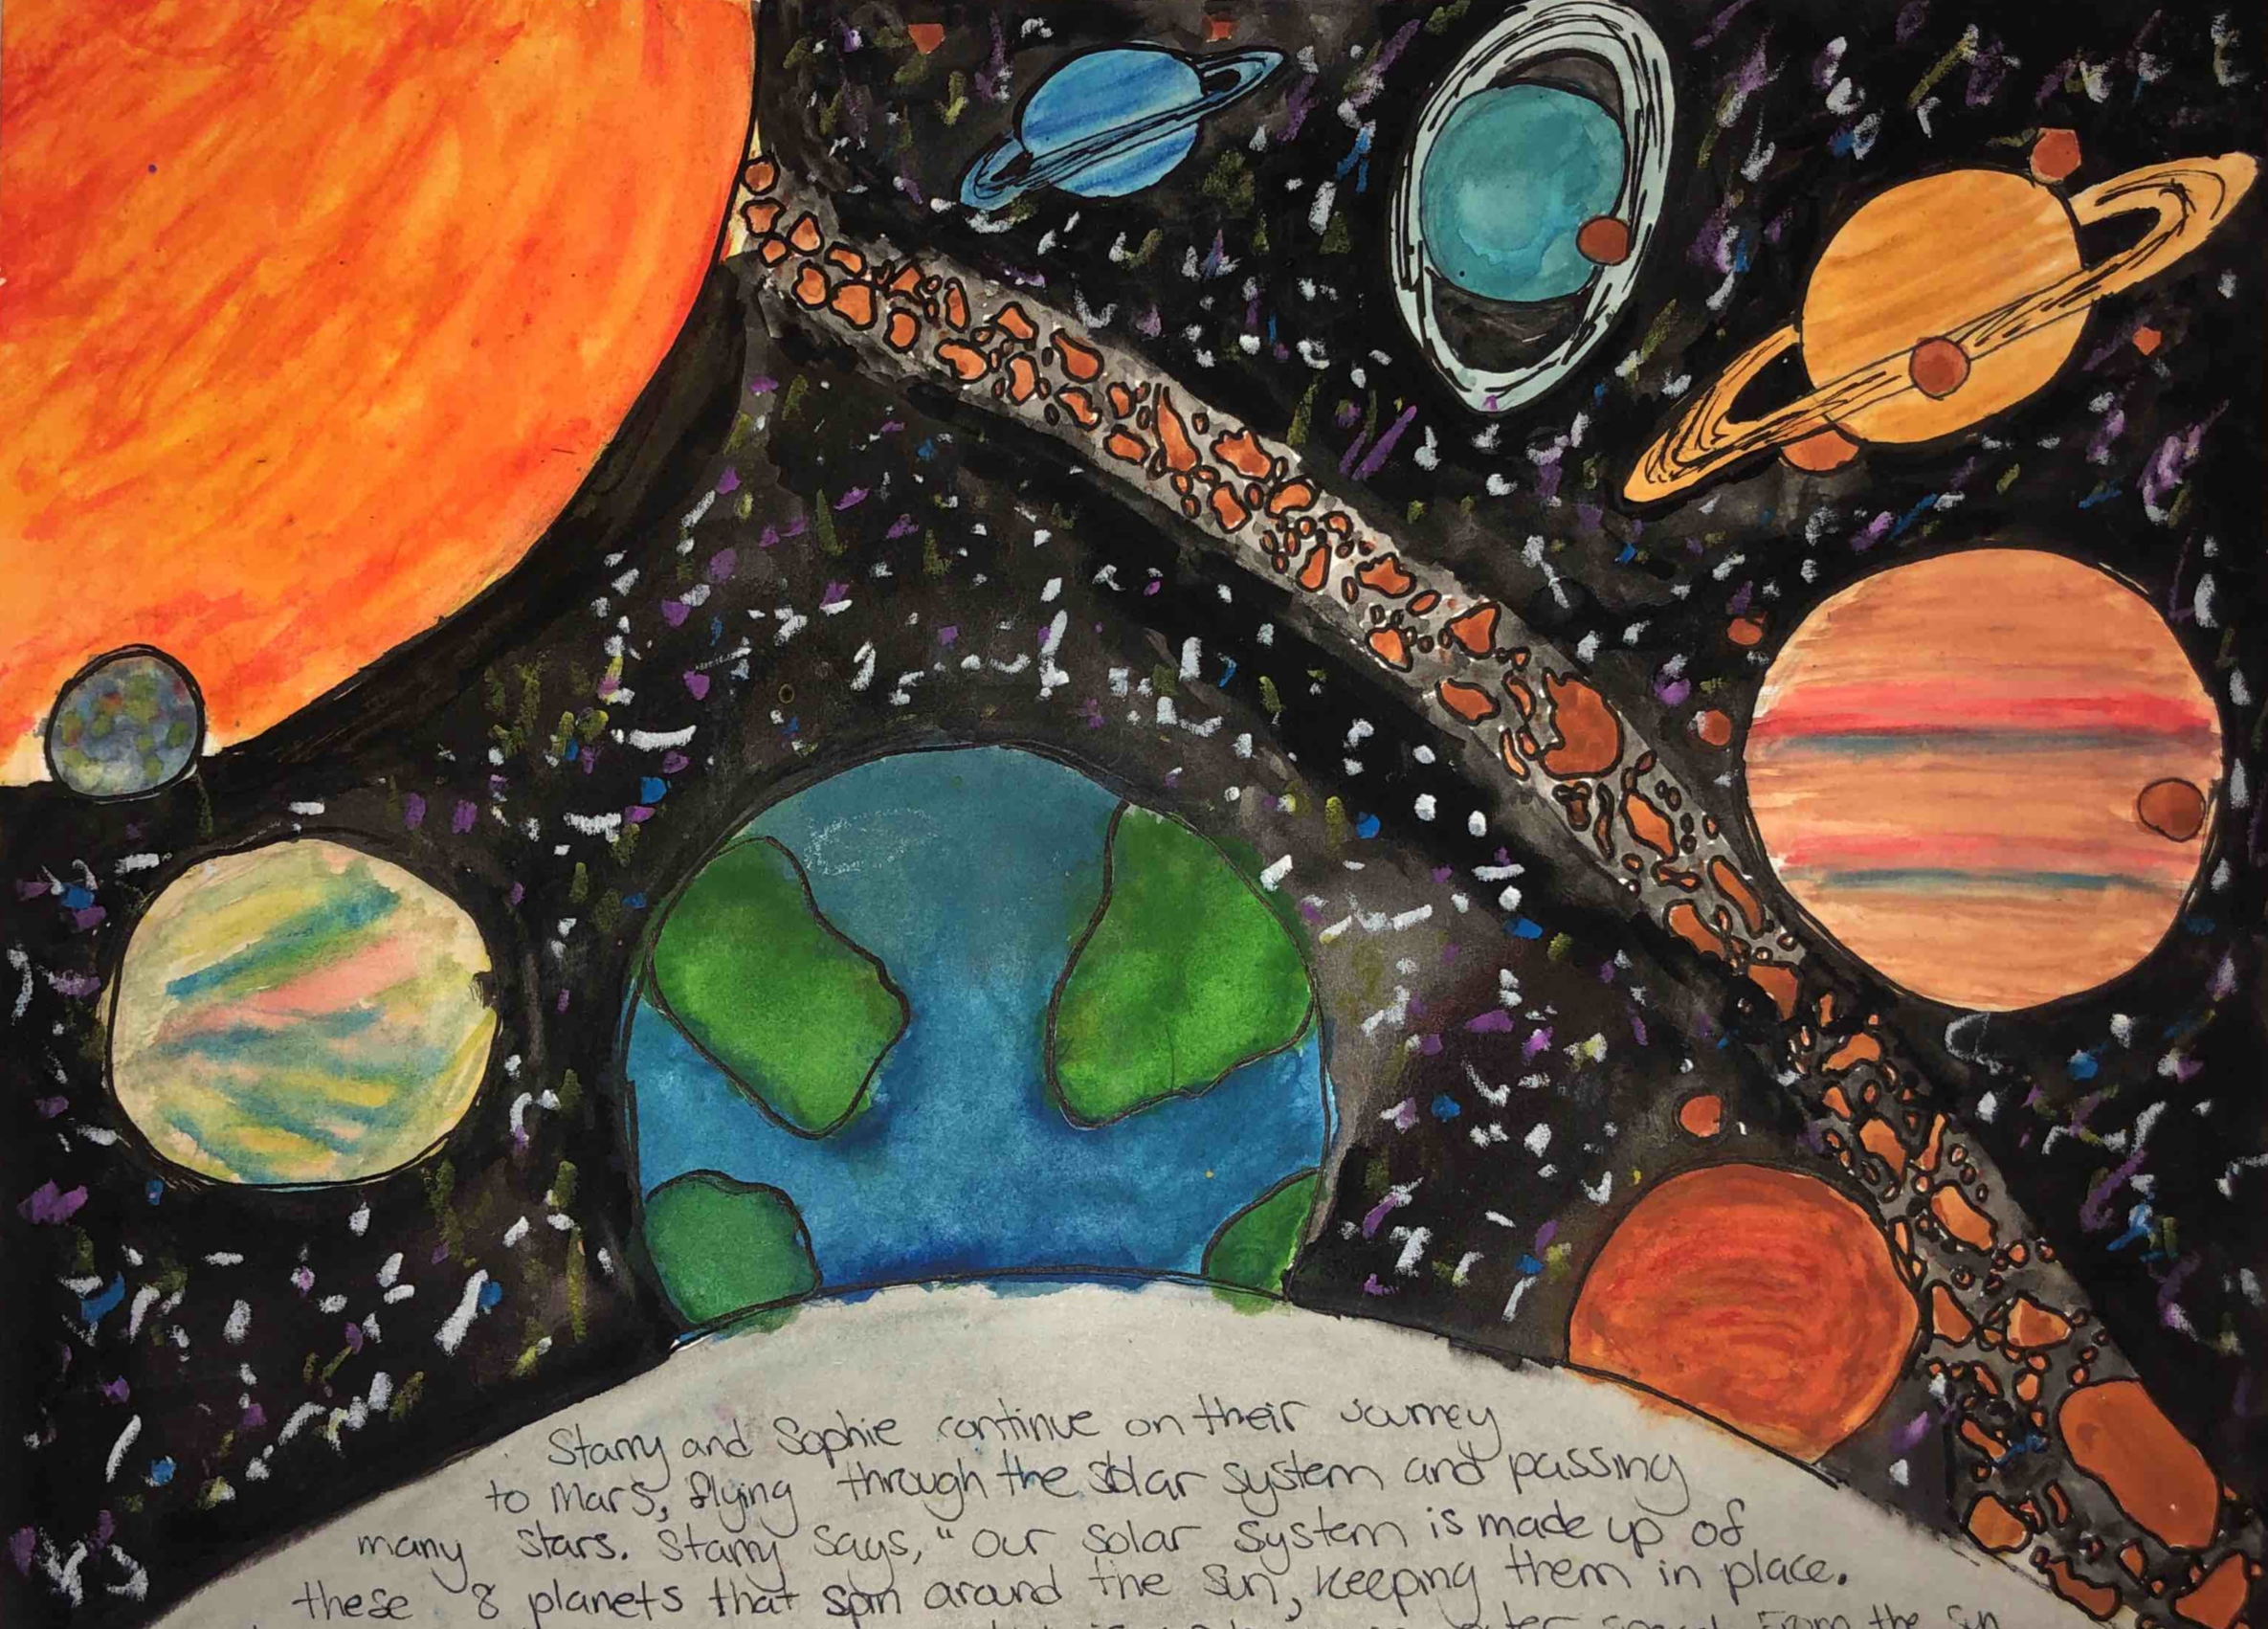 Starry and Sophie continue on their journey
to Mars, flying through the solar system and passing
many stars. Starry says, "our solar system is made up of
these 8 planets that spin around the sun, keeping them in place.
outer space. From the sun